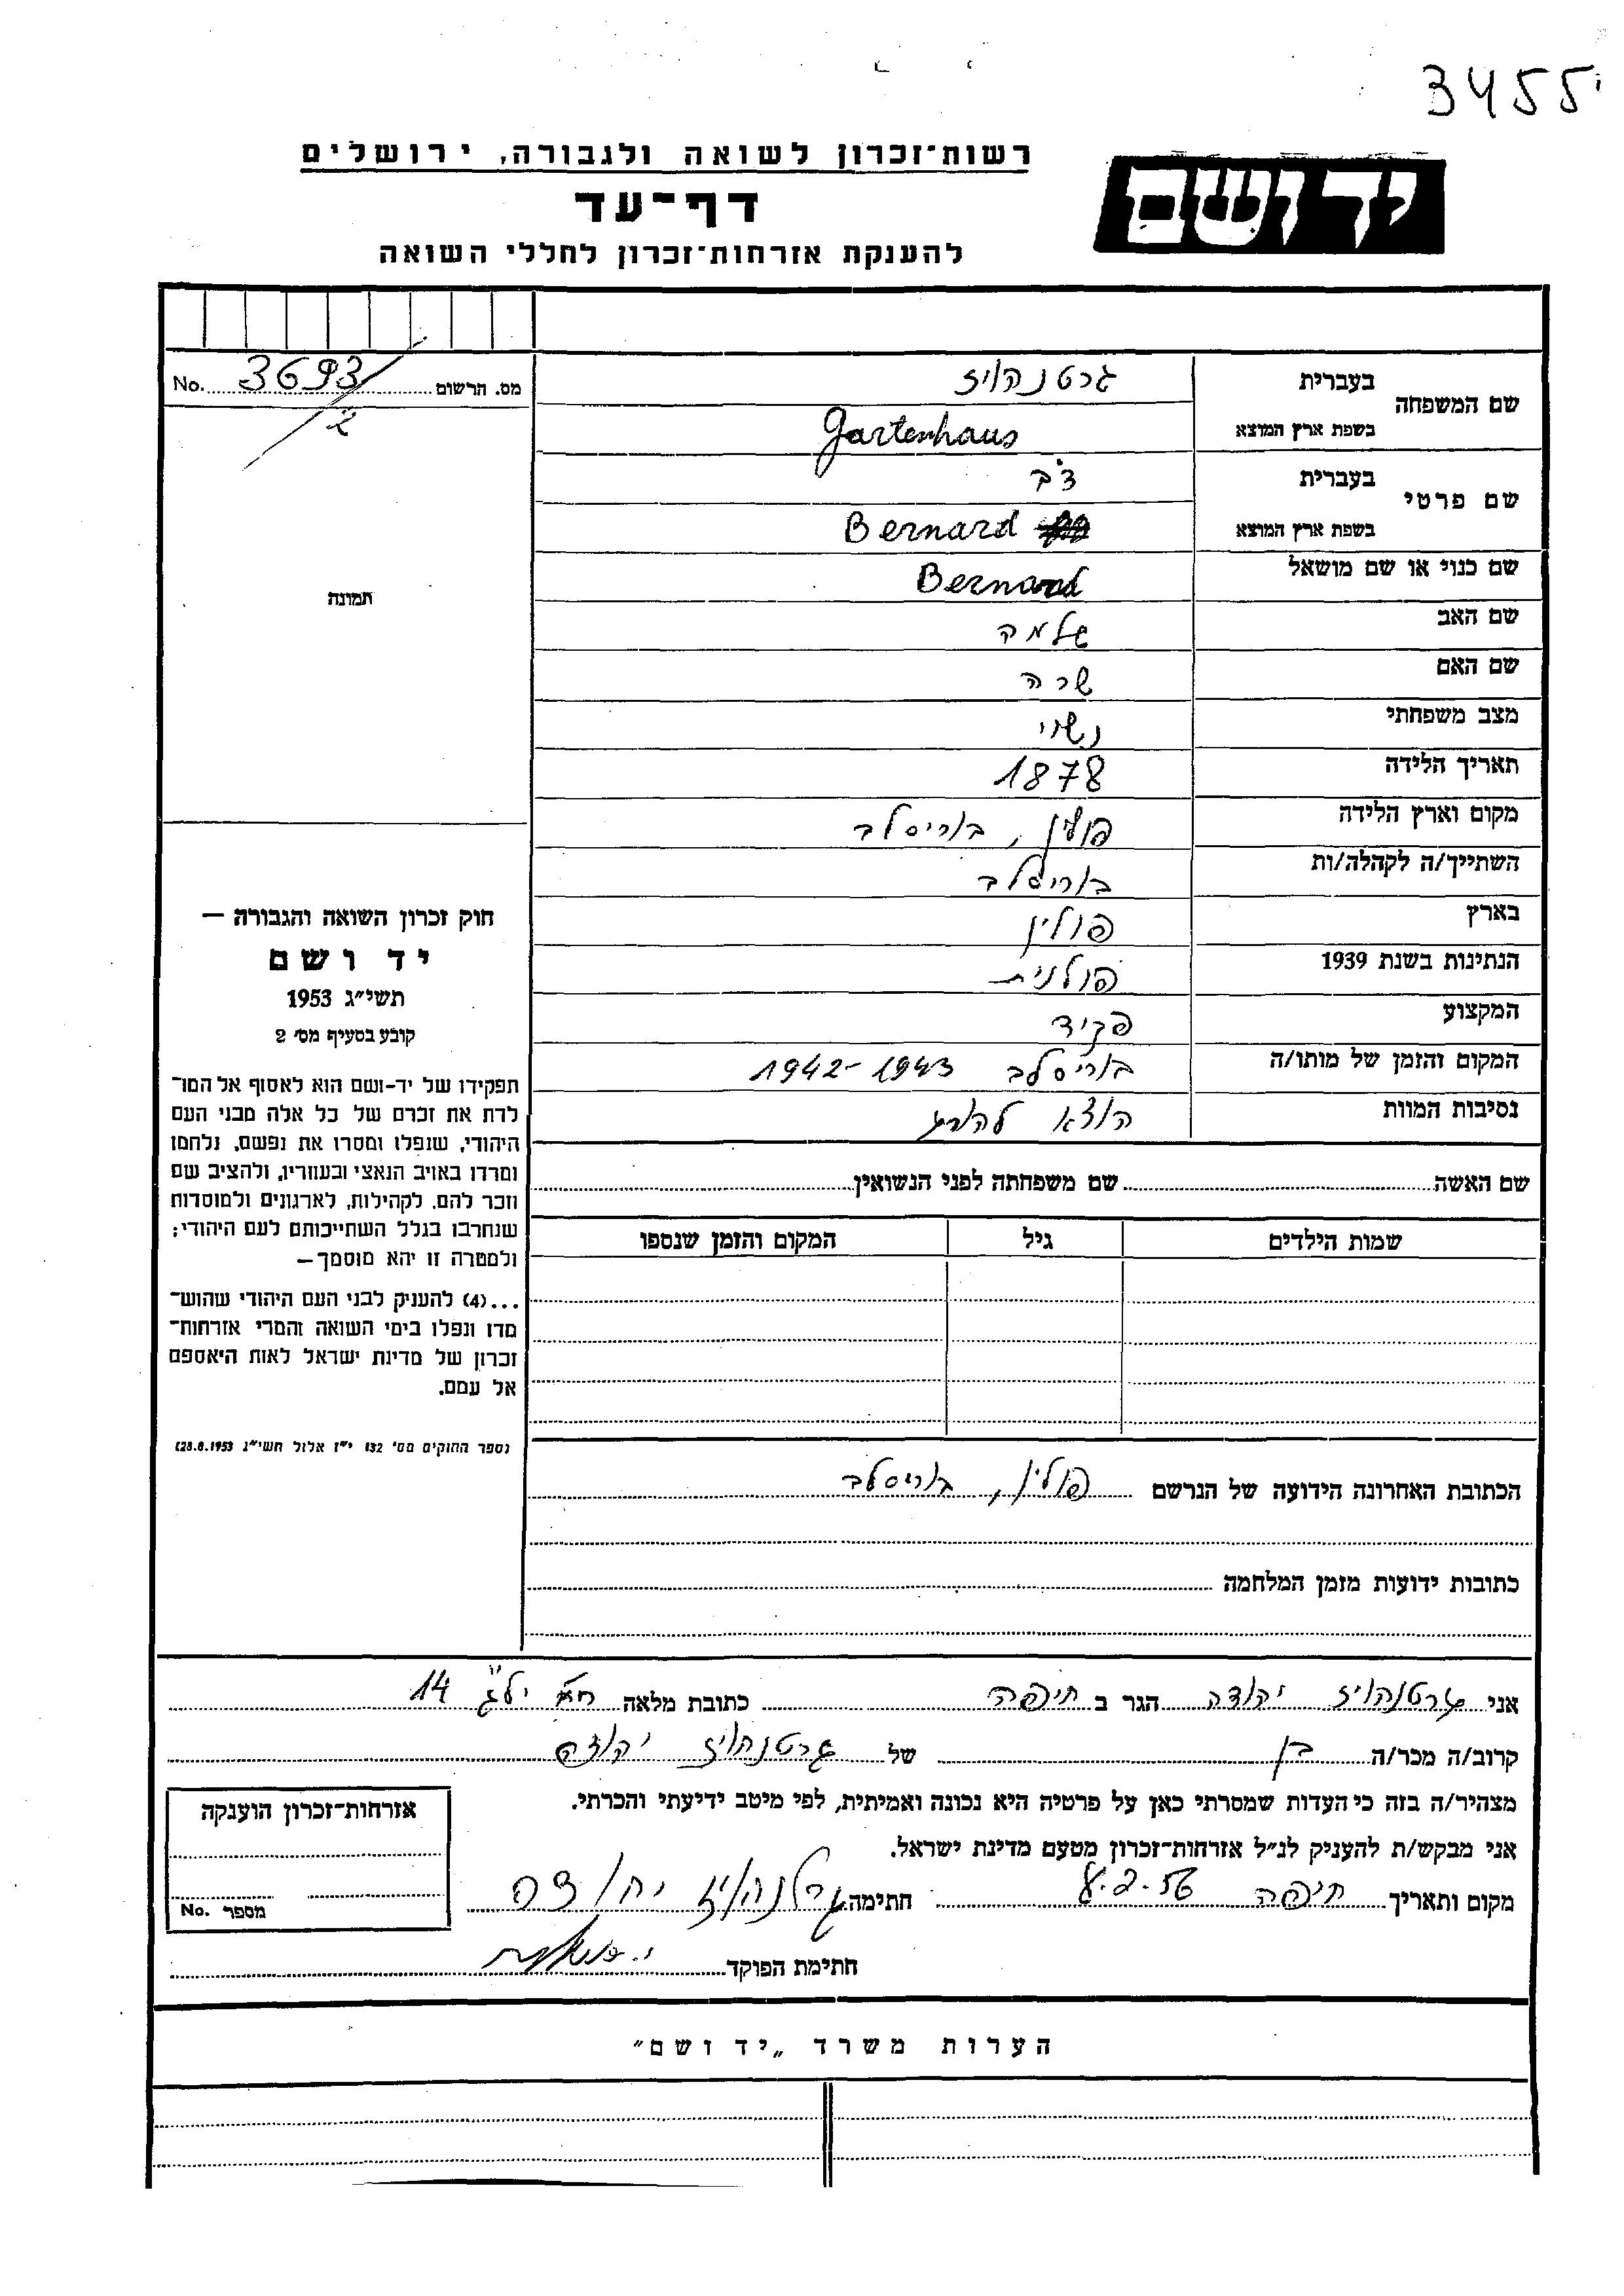 3455
רשות־זכרון לשואה ולגבורה, ירושלים
יד ושם
דף־עד
להענקת אזרחות־זכרון לחללי השואה
מס. הרשום 3693 No.
תמונה
שם המשפחה
בעברית גרטנהויז
בשפת ארץ המוצא Gartenhaus
שם פרטי
בעברית דב
בשפת ארץ המוצא Bernard
שם כנוי או שם מושאל Bernard
שם האב שלמה
שם האם שרה
מצב משפחתי נשוי
תאריך הלידה 1878
מקום וארץ הלידה פולין, בוריסלב
השתייך/ה לקהלה/ות בוריסלב
בארץ פולין
הנתינות בשנת 1939 פולנית
המקצוע פקיד
המקום והזמן של מותו/ה בוריסלב 1942-1943
נסיבות המוות הוצא להורג
שם האשה שם משפחתה לפני הנשואין
שמות הילדים גיל המקום והזמן שנספו
חוק זכרון השואה והגבורה —
יד ושם
תשי״ג 1953
קובע בסעיף מס׳ 2
תפקידו של יד-ושם הוא לאסוף אל המו־
לדת את זכרם של כל אלה מבני העם
היהודי, שנפלו ומסרו את נפשם, נלחמו
ומרדו באויב הנאצי ובעוזריו, ולהציב שם
וזכר להם, לקהילות, לארגונים ולמוסדות
שנחרבו בגלל השתייכותם לעם היהודי;
ולמטרה זו יהא מוסמך—
...(4) להעניק לבני העם היהודי שהוש־
מדו ונפלו בימי השואה והמרי אזרחות־
זכרון של מדינת ישראל לאות היאספם
אל עמם.
(ספר החוקים מס׳ 132 י״ז אלול תשי״ג 28.8.1953)
הכתובת האחרונה הידועה של הנרשם פולין, בוריסלב
כתובות ידועות מזמן המלחמה
אני גרטנהויז יהודה הגר ב חיפה כתובת מלאה יל״ג 14
קרוב/ה מכר/ה בן של גרטנהויז יהודה
מצהיר/ה בזה כי העדות שמסרתי כאן על פרטיה היא נכונה ואמיתית, לפי מיטב ידיעתי והכרתי.
אני מבקש/ת להעניק לנ״ל אזרחות־זכרון מטעם מדינת ישראל.
מקום ותאריך חיפה חתימה גרטנהויז יהודה
חתימת הפוקד
אזרחות־זכרון הוענקה
מספר No.
הערות משרד „יד ושם״